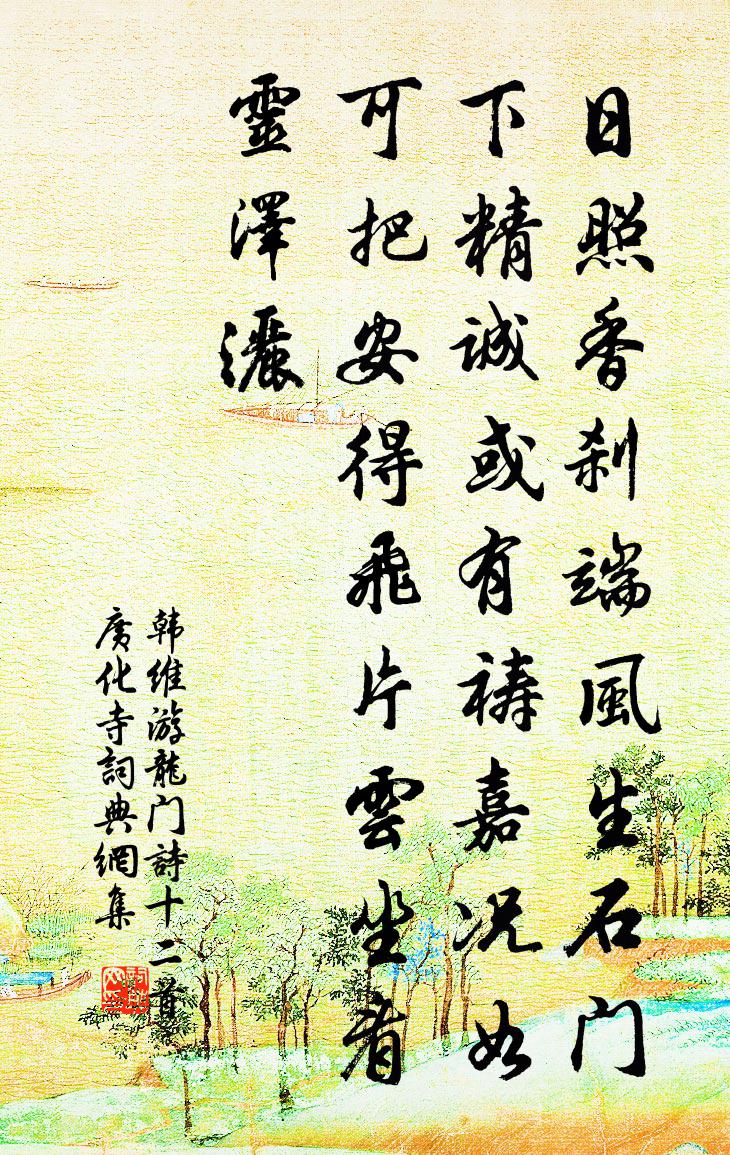 日照香刹端風生石门
下精誠或有禱嘉况如
可把安得飛片雲坐看
靈澤灑
韩維游龍门詩十二首
廣化寺詞典網集